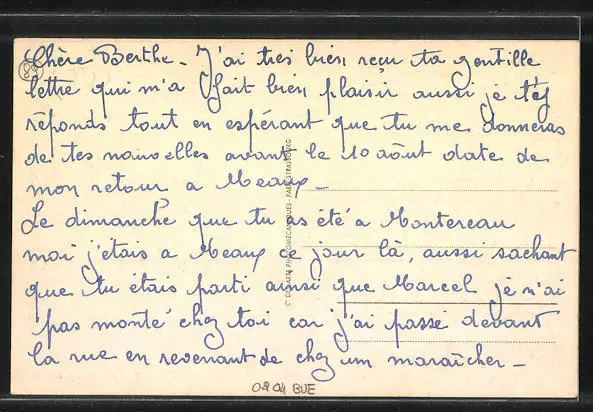 89
Chère Berthe - J'ai très bien reçu ta gentille
lettre qui m'a fait bien plaisir aussi je t'y
réponds tout en espérant que tu me donneras
de tes nouvelles avant le 10 août date de
mon retour a Meaux -
Le dimanche que tu as été a Montereau
moi j'étais a Meaux ce jour là, aussi sachant
que tu étais parti ainsi que Marcel je n'ai
pas monté chez toi car j'ai passé devant
la rue en revenant de chez un maraîcher -
PHOTOMECANIQUES - PARIS-STRASBOURG
0904 BUE